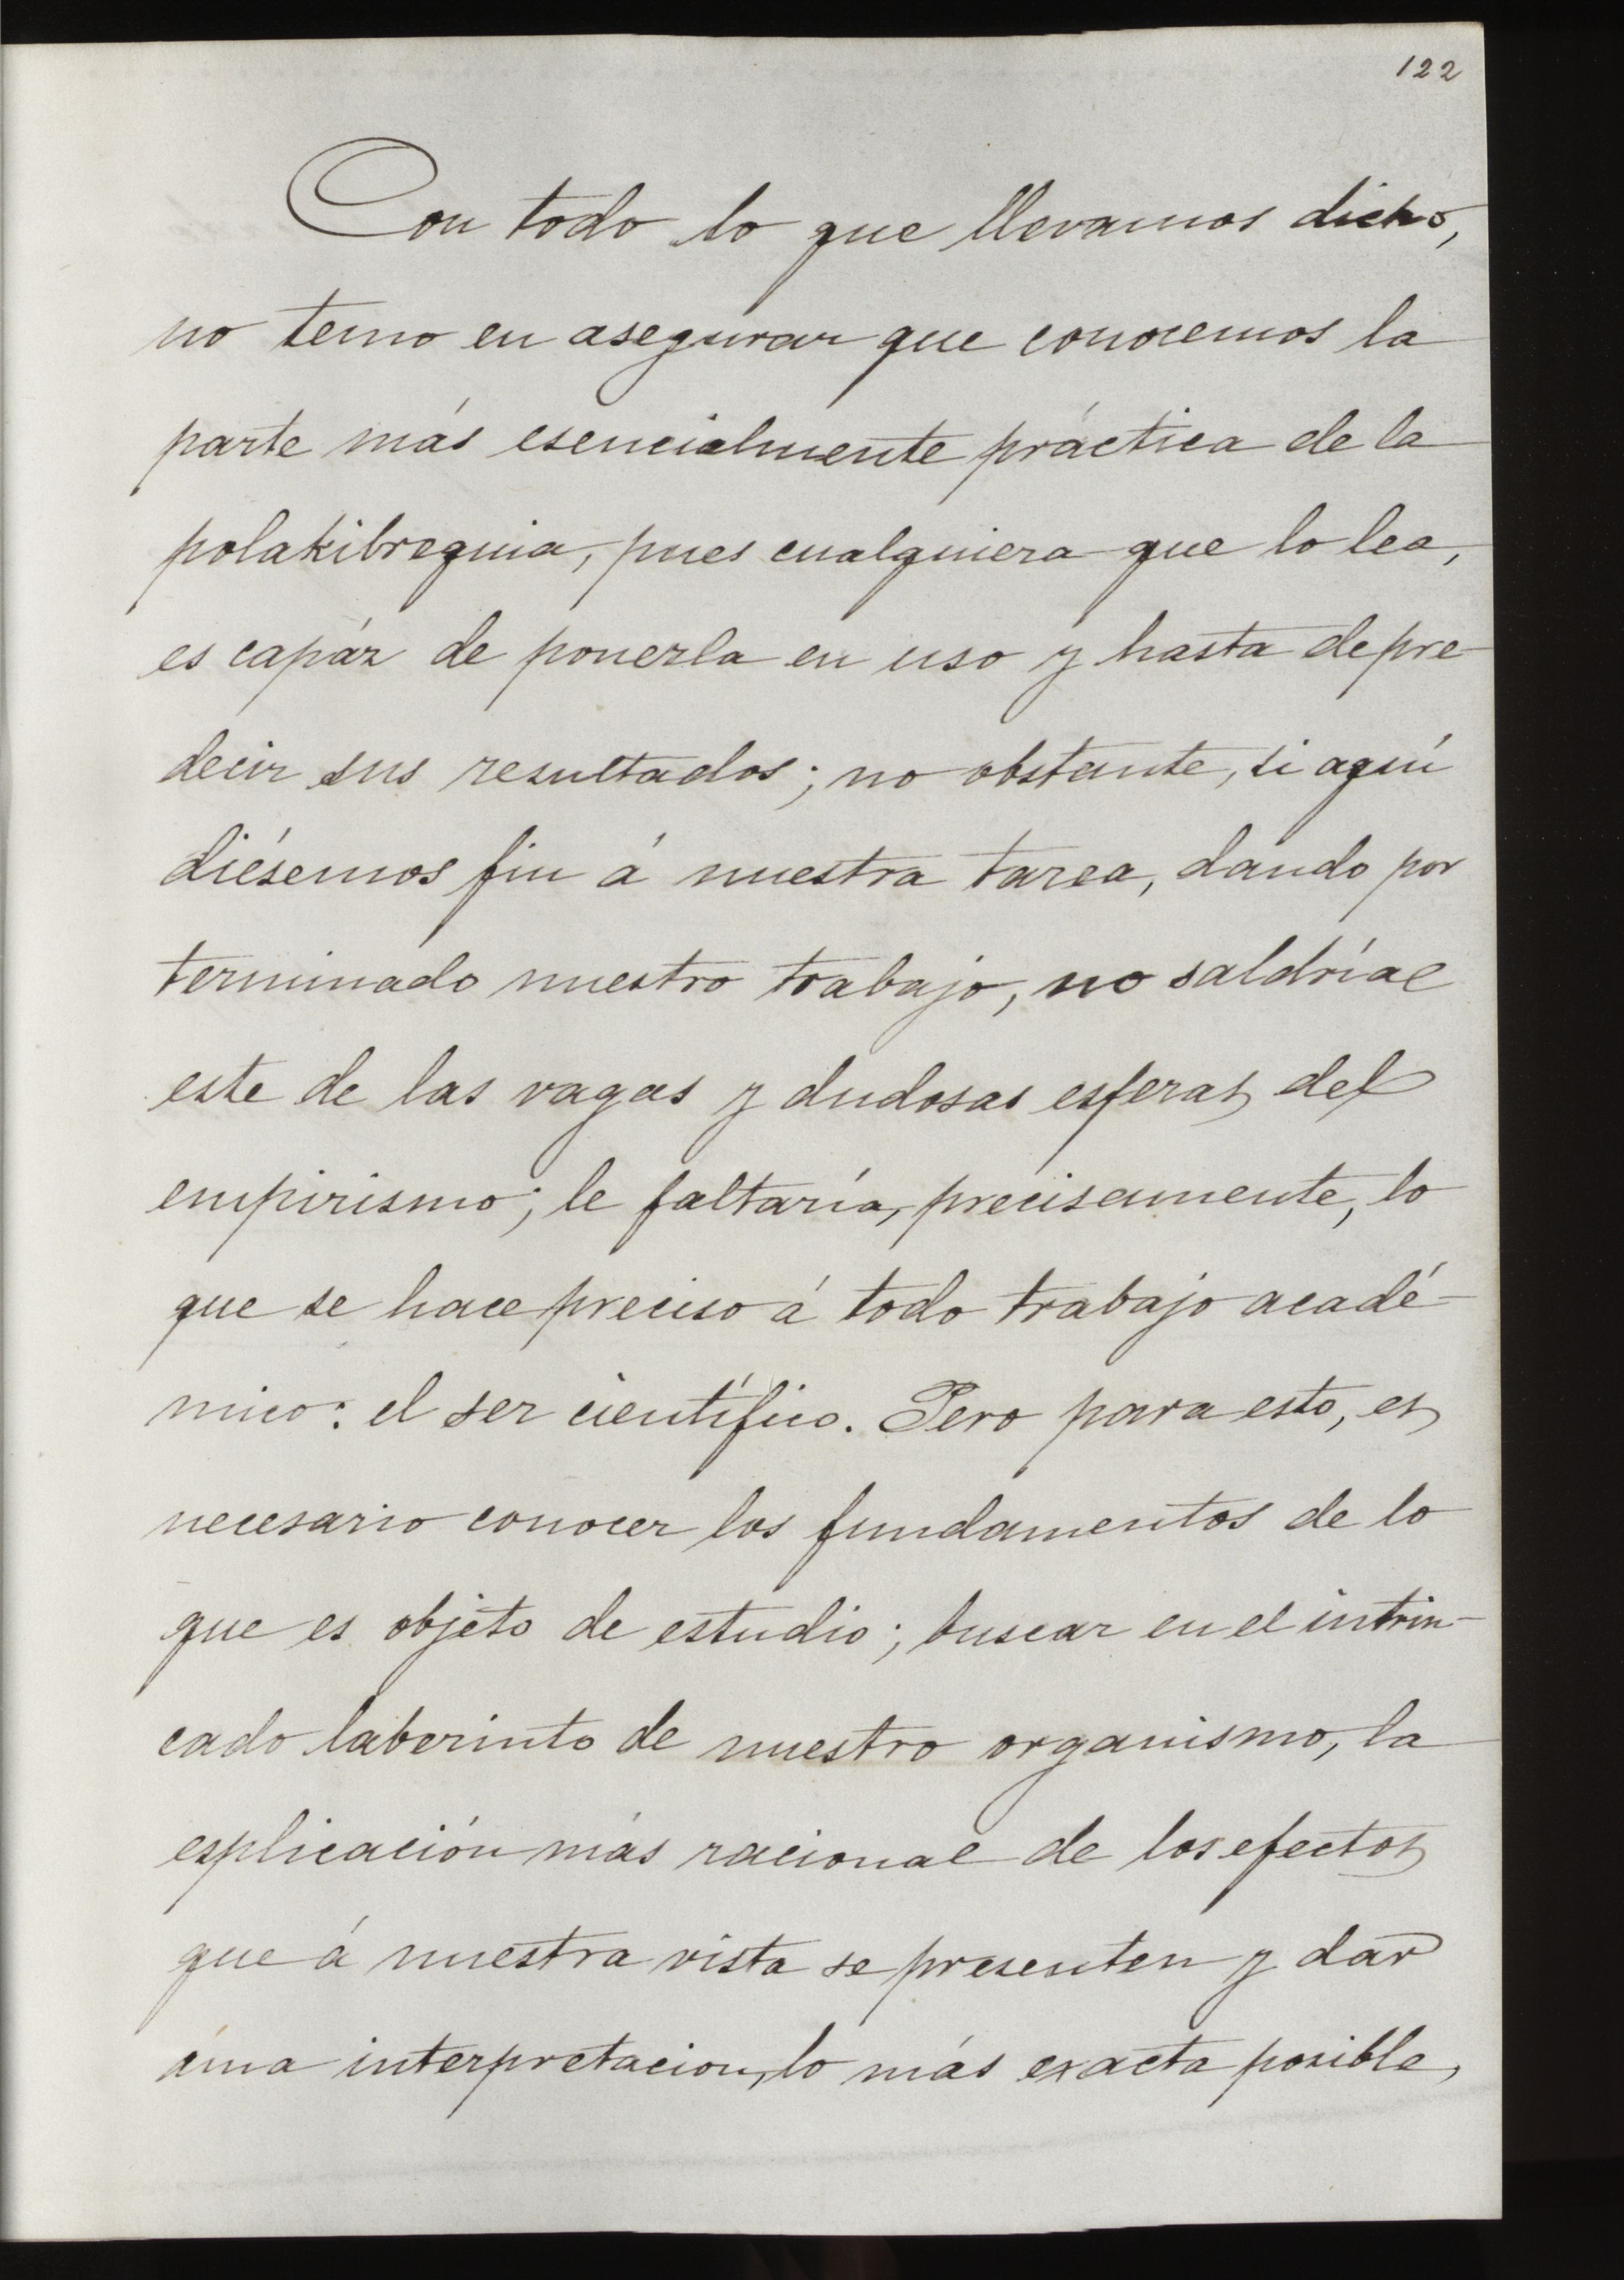 122
Con todo lo que llevamos dicho,
no temo en asegurar que conocemos la
parte más esencialmente práctica de la
polakibreguia, pues cualquiera que lo lea,
es capáz de ponerla en uso y hasta de pre-
decir sus resultados; no obstante, si aquí
diésemos fin á nuestra tarea, dando por
terminado nuestro trabajo, no saldríal
este de las vagas y dudosas esferas del
empirismo; le faltaría, precisamente, lo
que se hace preciso á todo trabajo acadé-
mico: el ser científico. Pero para esto, es
necesario conocer los fundamentos de lo
que es objeto de estudio; buscar en el intrin-
cado laberinto de nuestro organismo, la
esplicación más racional de los efectos
que á nuestra vista se presenten y dar
una interpretacion, lo más exacta posible,